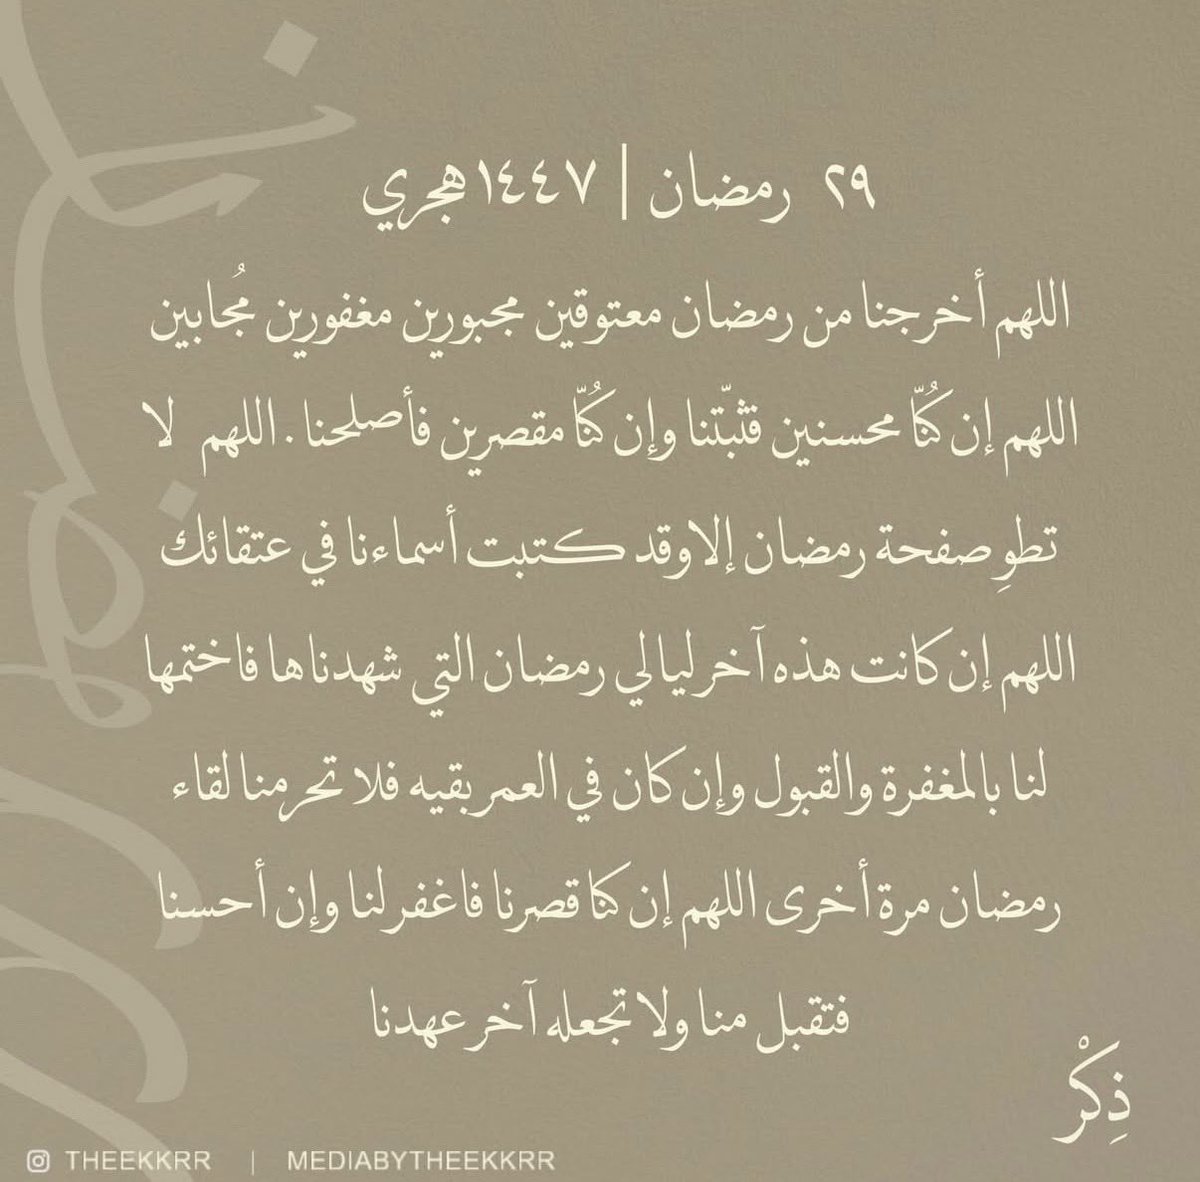 ٢٩ رمضان | ١٤٤٧ هجري
اللهم أخرجنا من رمضان معتوقين مجبورين مغفورين مُجابين
اللهم إن كُنّا محسنين فثبّتنا وإن كُنّا مقصرين فأصلحنا . اللهم لا
تطوِ صفحة رمضان إلا وقد كتبت أسماءنا في عتقائك
اللهم إن كانت هذه آخر ليالي رمضان التي شهدناها فاختمها
لنا بالمغفرة والقبول وإن كان في العمر بقيه فلا تحرمنا لقاء
رمضان مرة أخرى اللهم إن كنا قصرنا فاغفر لنا وإن أحسنا
فتقبل منا ولا تجعله آخر عهدنا
ذِكْر
THEEKKRR | MEDIABYTHEEKKRR